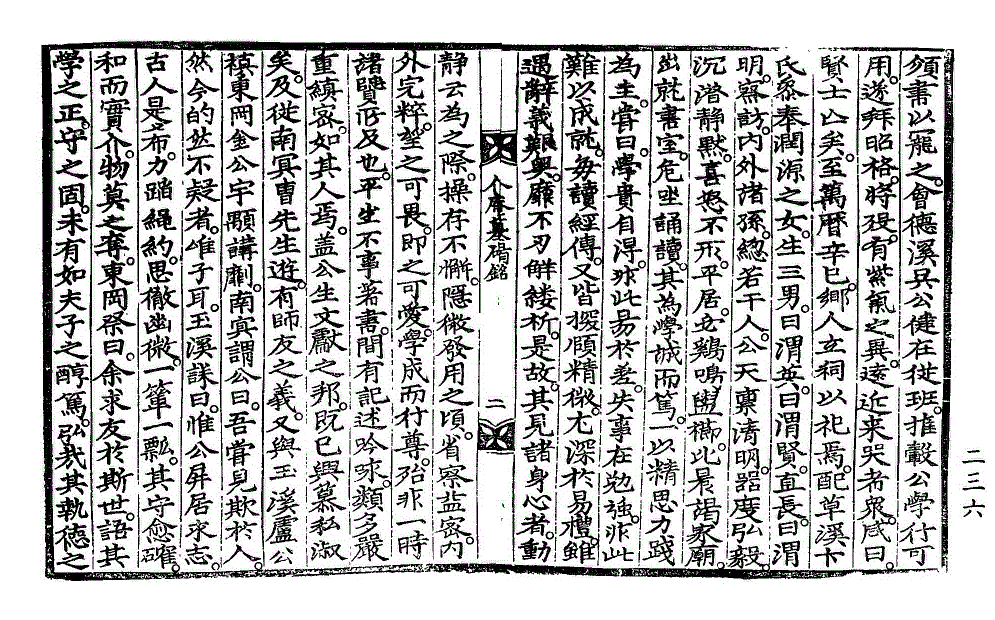 頒書以寵之會德溪吳公健在從班推轂公學行可
用遂拜昭格時歿有紫氣之異遠近來哭者衆咸曰
賢士亾矣至萬曆辛巳鄕人立祠以祀焉配草溪卞
氏叅奉潤源之女生三男曰渭英曰渭賢直長曰渭
明察訪內外諸孫緫若干人公天稟清明器度弘毅
沉潛靜默喜慍不形平居玄鷄鳴盥櫛比晨謁家廟
出就書室危坐誦讀其爲學誠而篤一以精思力踐
爲主嘗曰學貴自淂非此易於差失事在勉強非此
難以成就每讀經傳又皆探賾精微尤深於易禮雖
遇辭義艱奧靡不刃觧縷析是故其見諸身心者動
介庵墓碣銘 二
靜云爲之際操存不懈隱微發用之頃省察益密內
外完粹望之可畏即之可愛學成而行尊殆非一時
諸賢所及也平生不事著書間有記述吟咏類多嚴
重縝密如其人焉盖公生文獻之邦既已興慕私淑
矣及從南冥曺先生遊有師友之義又與玉溪盧公
禛東岡金公宇顒講劘南冥謂公曰吾嘗見欺於人
然今的然不疑者唯子耳玉溪誄曰惟公屏居求志
古人是希力踏繩約思徹幽微一簞一瓢其守愈確
和而實介物莫之奪東岡祭曰余求友於斯世語其
學之正守之固未有如夫子之醇篤弘哉其執德之
二三六